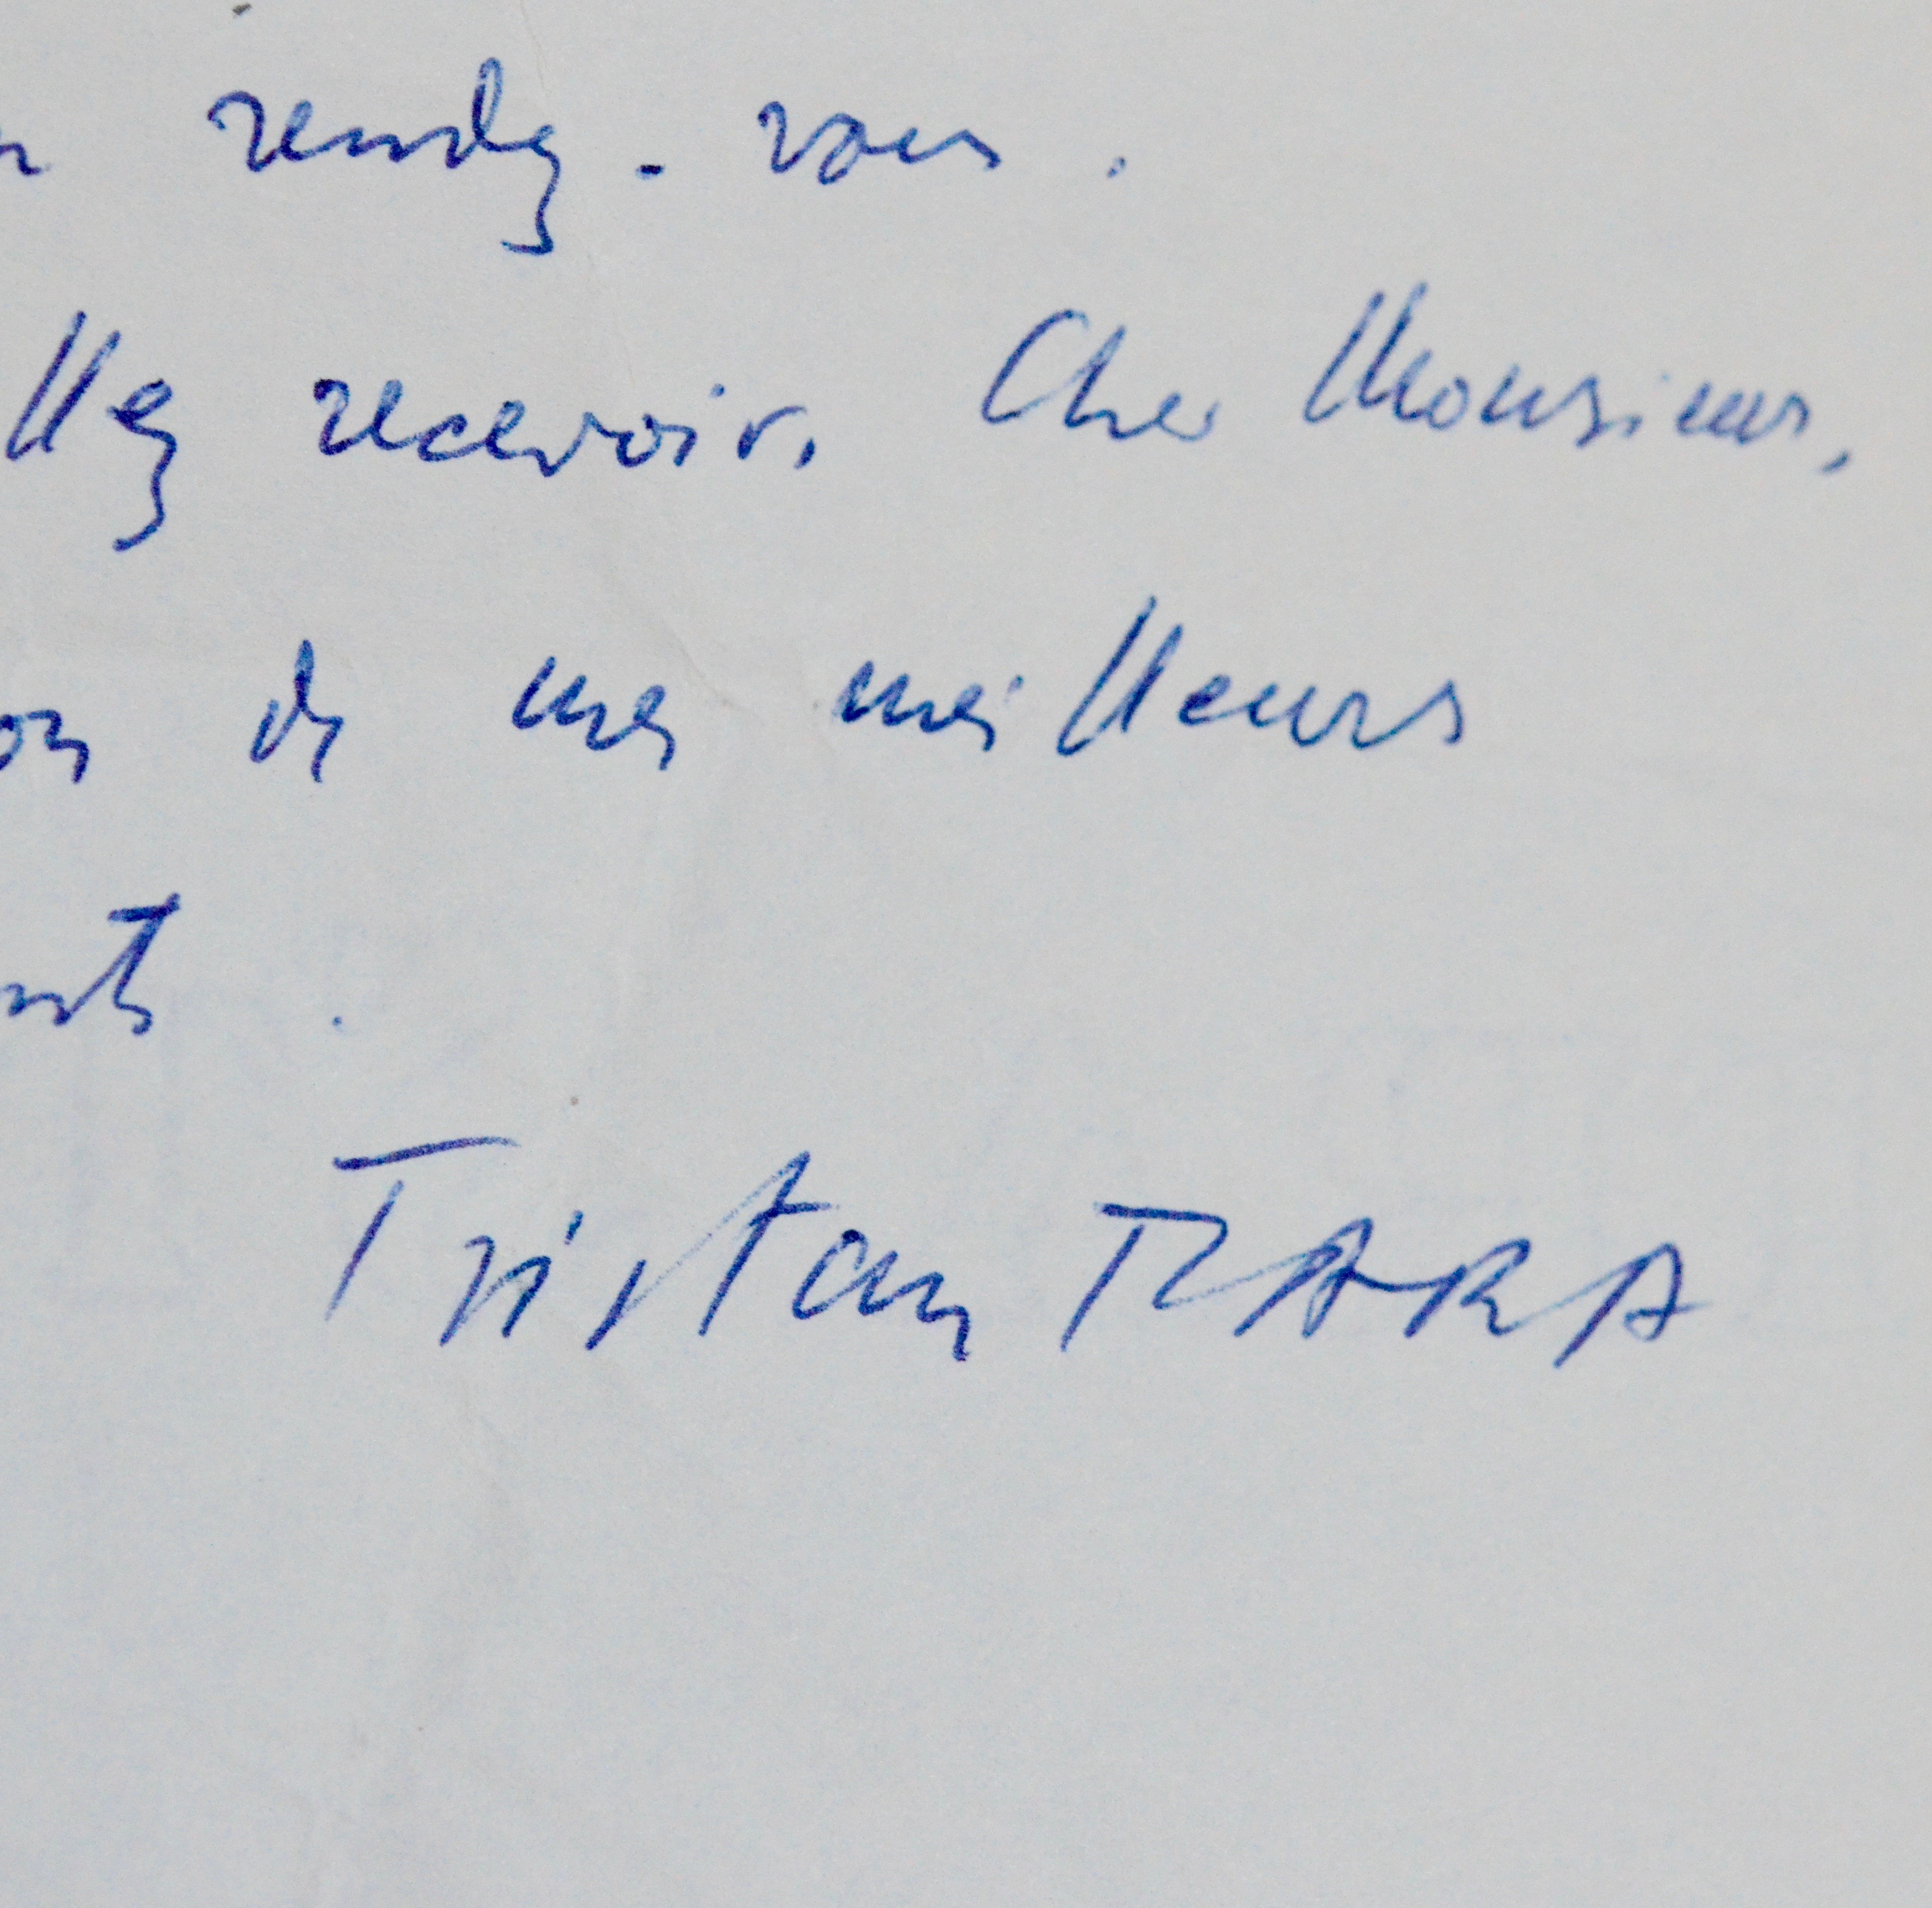 n rendez-vous.
llez recevoir, Cher Monsieur,
on de mes meilleurs
nts.
Tristan TZARA